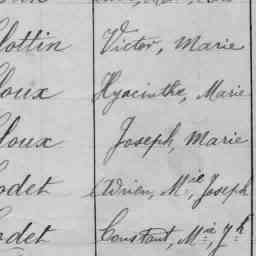 lottin Victor, Marie
loux Hyacinthe, Marie
loux Joseph, Marie
odet Adrien, Mie, Joseph
odet Constant, Mie, Jh